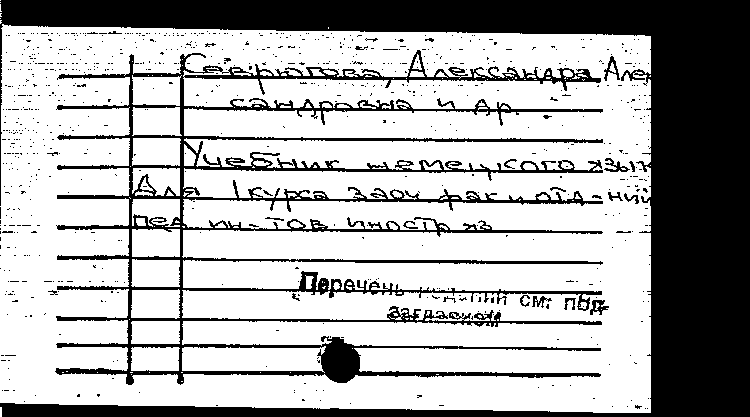 Севрюгова, Александра Алек
сандровна и др.
Учебник немецкого язык
Для I курса заоч фак и отд-ний
пед ин-тов иностр яз
Перечень изданий см. под
заглавием